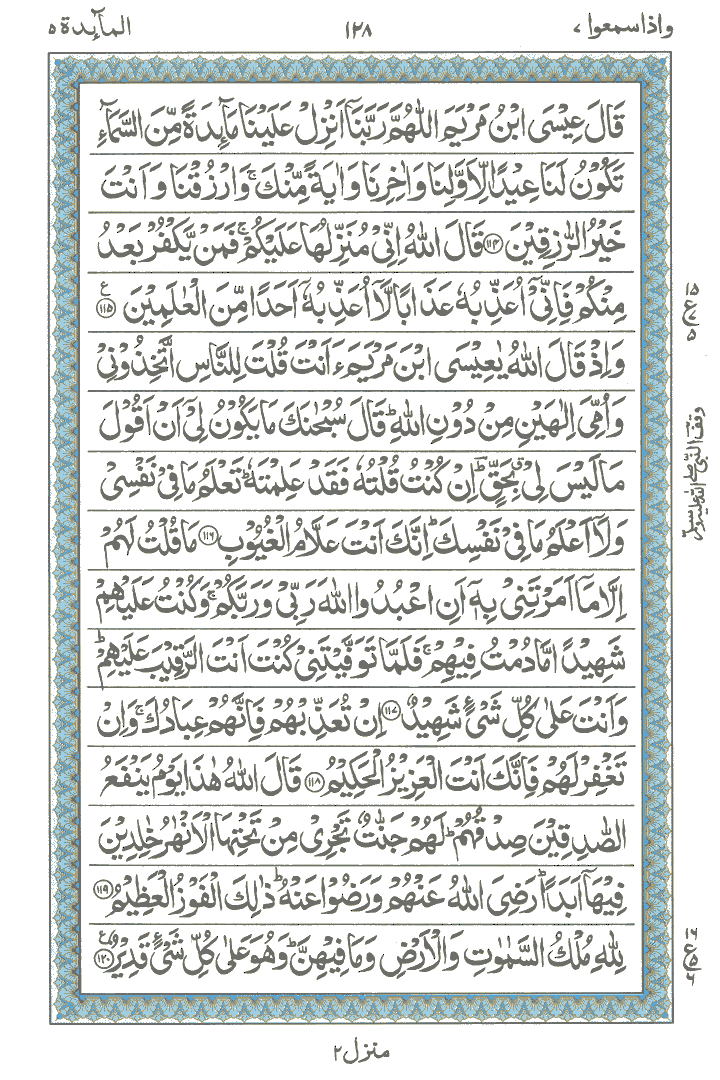 واذا سمعوا ٧
١٢٨
المآىِٕدة ٥
قَالَ عِیْسَی ابْنُ مَرْیَمَ اللّٰهُمَّ رَبَّنَاۤ اَنْزِلْ عَلَیْنَا مَآىِٕدَةً مِّنَ السَّمَآءِ
تَكُوْنُ لَنَا عِیْدًا لِّاَوَّلِنَا وَ اٰخِرِنَا وَ اٰیَةً مِّنْكَ ۚ وَ ارْزُقْنَا وَ اَنْتَ
خَیْرُ الرّٰزِقِیْنَ ﴿۱۱۴﴾ قَالَ اللّٰهُ اِنِّیْ مُنَزِّلُهَا عَلَیْكُمْ ۚ فَمَنْ یَّكْفُرْ بَعْدُ
مِنْكُمْ فَاِنِّیْۤ اُعَذِّبُهٗ عَذَابًا لَّاۤ اُعَذِّبُهٗۤ اَحَدًا مِّنَ الْعٰلَمِیْنَ ﴿۱۱۵﴾ ع
وَ اِذْ قَالَ اللّٰهُ یٰعِیْسَی ابْنَ مَرْیَمَ ءَاَنْتَ قُلْتَ لِلنَّاسِ اتَّخِذُوْنِیْ
وَ اُمِّیَ اِلٰهَیْنِ مِنْ دُوْنِ اللّٰهِ ؕ قَالَ سُبْحٰنَكَ مَا یَكُوْنُ لِیْۤ اَنْ اَقُوْلَ
مَا لَیْسَ لِیْ ۗ بِحَقٍّ ؕ اِنْ كُنْتُ قُلْتُهٗ فَقَدْ عَلِمْتَهٗ ؕ تَعْلَمُ مَا فِیْ نَفْسِیْ
وَ لَاۤ اَعْلَمُ مَا فِیْ نَفْسِكَ ؕ اِنَّكَ اَنْتَ عَلَّامُ الْغُیُوْبِ ﴿۱۱۶﴾ مَا قُلْتُ لَهُمْ
اِلَّا مَاۤ اَمَرْتَنِیْ بِهٖۤ اَنِ اعْبُدُوا اللّٰهَ رَبِّیْ وَ رَبَّكُمْ ۚ وَ كُنْتُ عَلَیْهِمْ
شَهِیْدًا مَّا دُمْتُ فِیْهِمْ ۚ فَلَمَّا تَوَفَّیْتَنِیْ كُنْتَ اَنْتَ الرَّقِیْبَ عَلَیْهِمْ ؕ
وَ اَنْتَ عَلٰی كُلِّ شَیْءٍ شَهِیْدٌ ﴿۱۱۷﴾ اِنْ تُعَذِّبْهُمْ فَاِنَّهُمْ عِبَادُكَ ۚ وَ اِنْ
تَغْفِرْ لَهُمْ فَاِنَّكَ اَنْتَ الْعَزِیْزُ الْحَكِیْمُ ﴿۱۱۸﴾ قَالَ اللّٰهُ هٰذَا یَوْمُ یَنْفَعُ
الصّٰدِقِیْنَ صِدْقُهُمْ ؕ لَهُمْ جَنّٰتٌ تَجْرِیْ مِنْ تَحْتِهَا الْاَنْهٰرُ خٰلِدِیْنَ
فِیْهَاۤ اَبَدًا ؕ رَضِیَ اللّٰهُ عَنْهُمْ وَ رَضُوْا عَنْهُ ؕ ذٰلِكَ الْفَوْزُ الْعَظِیْمُ ﴿۱۱۹﴾
لِلّٰهِ مُلْكُ السَّمٰوٰتِ وَ الْاَرْضِ وَ مَا فِیْهِنَّ ؕ وَ هُوَ عَلٰی كُلِّ شَیْءٍ قَدِیْرٌ ﴿۱۲۰﴾ ع
وقف النبی صلی اللہ علیہ وسلم
منزل ٢